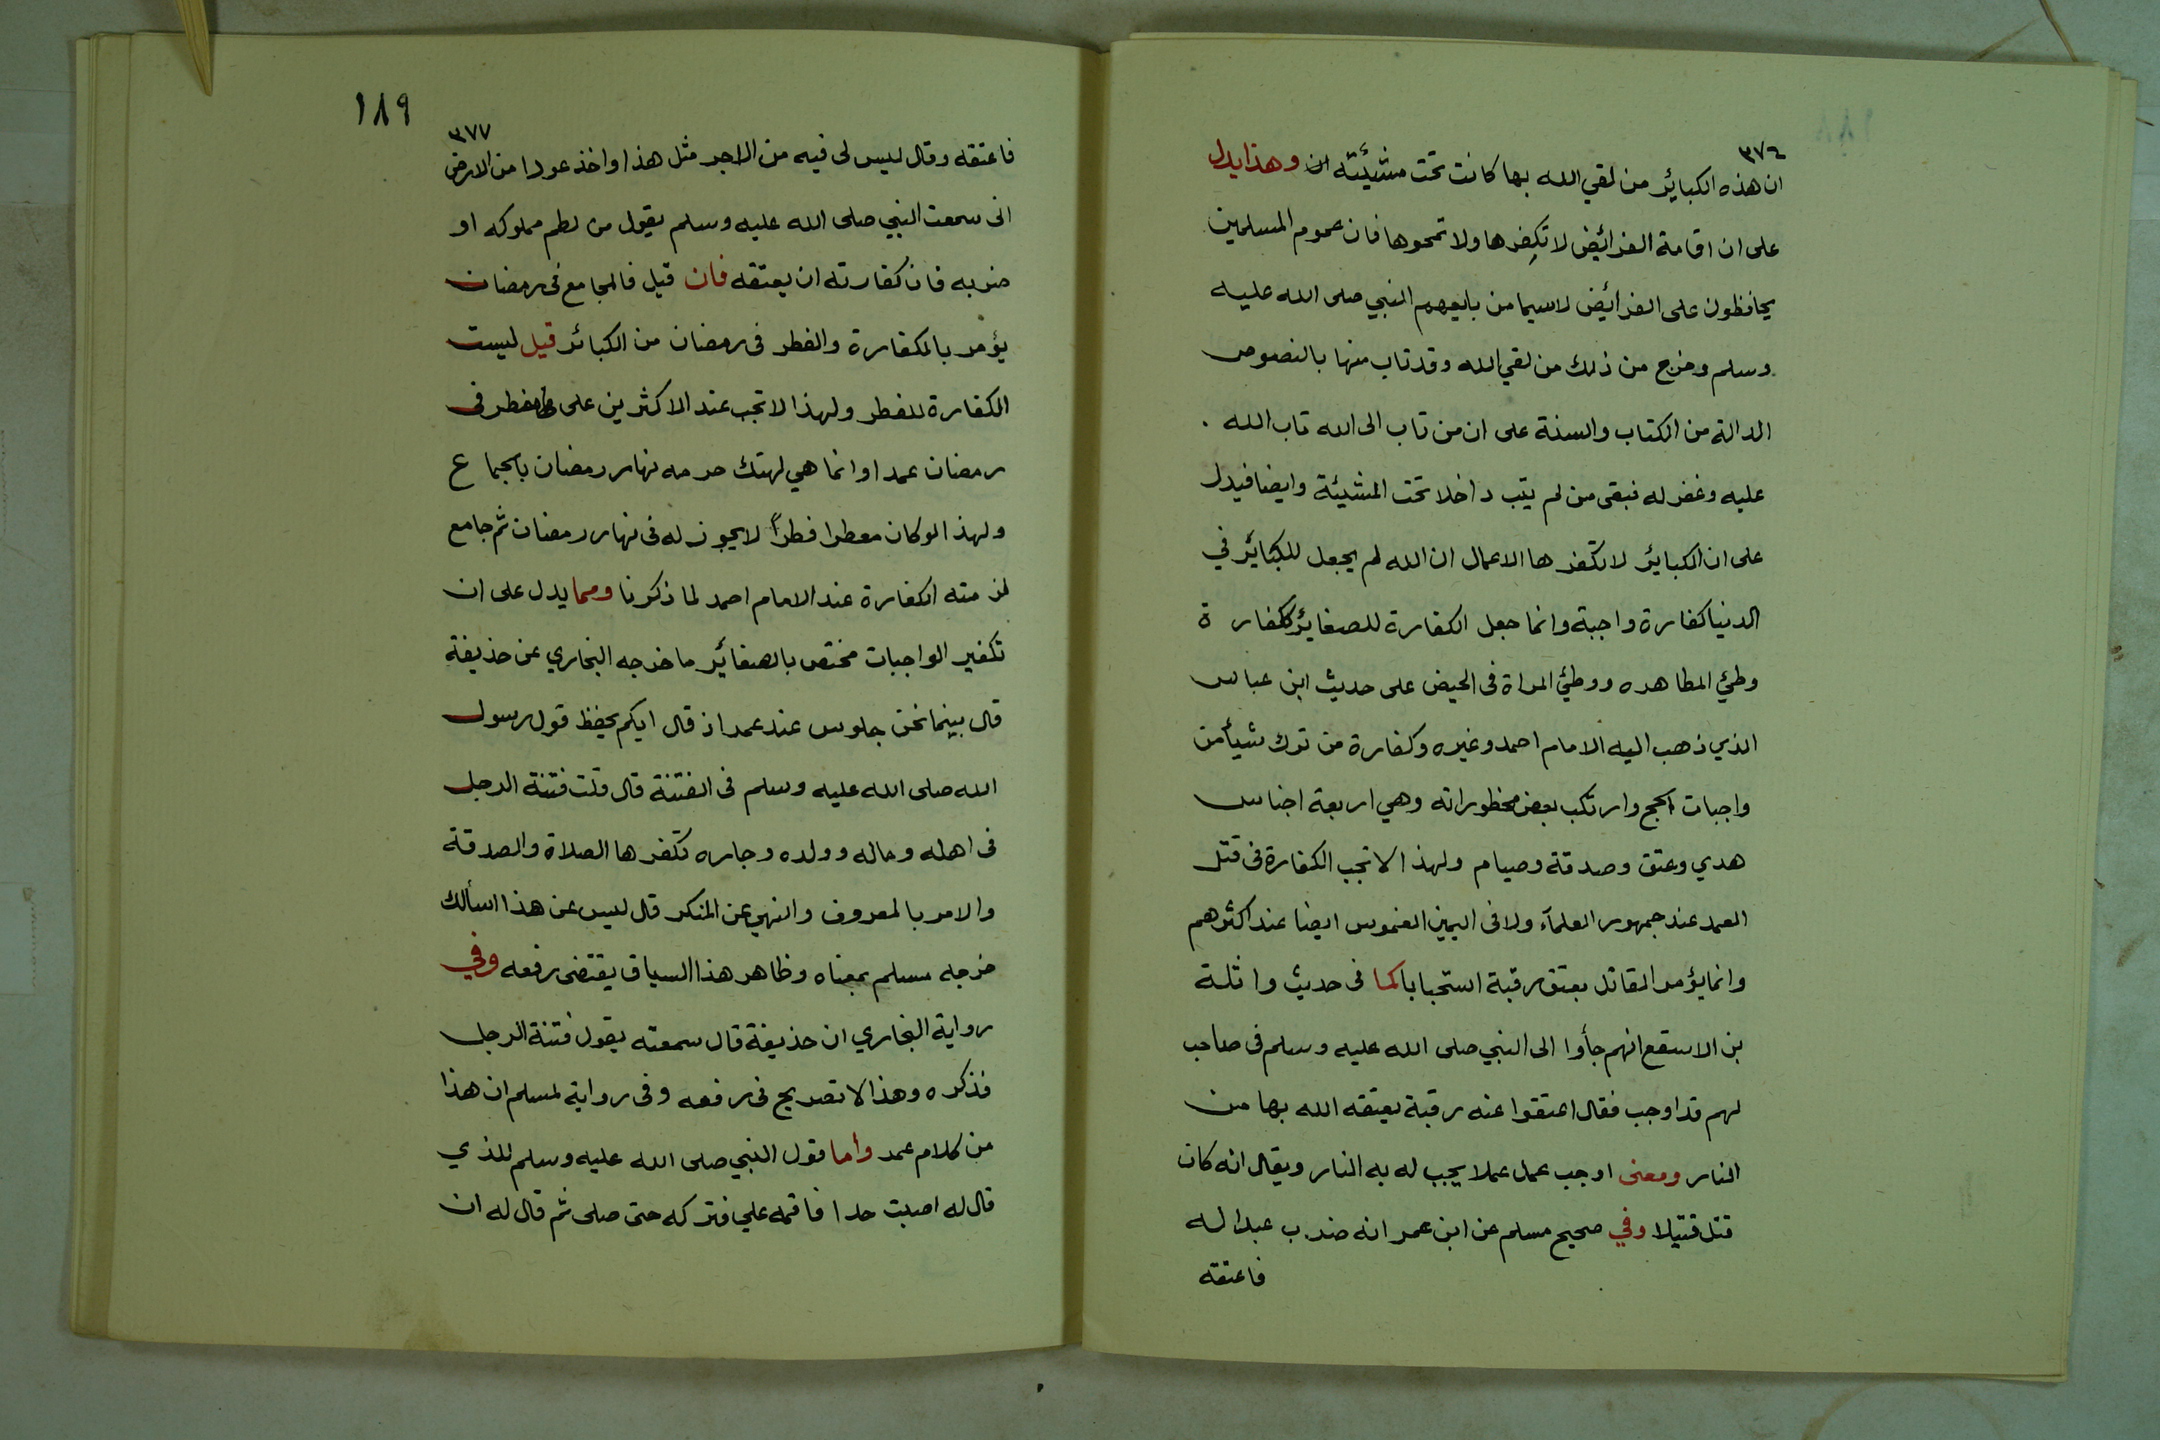 ٣٧٦
ان هذه الكبائر من لقي الله بها كانت تحت مشيئته ان وهذا يدل
على ان اقامة الفرائض لا تكفرها ولا تمحوها فان عموم المسلمين
يحافظون على الفرائض لاسيما من بايعهم النبي صلى الله عليه
وسلم وخرج من ذلك من لقي الله وقد تاب منها بالنصوص
الدالة من الكتاب والسنة على ان من تاب الى الله تاب الله .
عليه وغفر له فبقى من لم يتب داخلا تحت المشيئة وايضا فيدل
على ان الكبائر لا تكفرها الاعمال ان الله لم يجعل للكبائر في
الدنيا كفارة واجبة وانما جعل الكفارة للصغائر ككفارة
وطئ المظاهره ووطئ المراة فى الحيض على حديث ابن عباس
الذي ذهب اليه الامام احمد وغيره وكفارة من ترك شيأ من
واجبات الحج وارتكب بعض محظوراته وهي اربعة اجناس
هدي وعتق وصدقة وصيام ولهذا لا تجب الكفارة فى قتل
العمد عند جمهور العلمآء ولا فى اليمين الغموس ايضا عند اكثرهم
وانما يؤمر القاتل بعتق رقبة استحبابا كما فى حديث واثلة
بن الاسقع انهم جأوا الى النبي صلى الله عليه وسلم فى صاحب
لهم قد اوجب فقال اعتقوا عنه رقبة يعتقه الله بها من
النار ومعنى اوجب عمل عملا يجب له به النار ويقال انه كان
قتل قتيلا وفي صحيح مسلم عن ابن عمر انه ضرب عبدا له
فاعتقه
١٨٩
٣٧٧
فاعتقه وقال ليس لى فيه من الاجر مثل هذا واخذ عودا من الارض
انى سمعت النبي صلى الله عليه وسلم يقول من لطم مملوكه او
ضربه فان كفارته ان يعتقه فان قيل فالمجامع فى رمضان
يؤمر بالكفارة والفطر فى رمضان من الكبائر قيل ليست
الكفارة للفطر ولهذا لا تجب عند الاكثرين على كل مفطر فى
رمضان عمدا وانما هي لهتك حرمه نهار رمضان بالجماع
ولهذا لو كان مفطرا فطراً لا يجوز له فى نهار رمضان ثم جامع
لزمته الكفارة عند الامام احمد لما ذكرنا ومما يدل على ان
تكفير الواجبات مختص بالصغائر ما خرجه البخاري عن حذيفة
قال بينما نحن جلوس عند عمر اذ قال ايكم يحفظ قول رسول
الله صلى الله عليه وسلم فى الفتنة قال قلت فتنة الرجل
فى اهله وماله وولده وجاره تكفرها الصلاة والصدقة
والامر بالمعروف والنهي عن المنكر قال ليس عن هذا اسألك
خرجه مسلم بمعناه وظاهر هذا السياق يقتضى رفعه وفي
رواية البخاري ان حذيفة قال سمعته يقول فتنة الرجل
فذكره وهذا لا تصريح فى رفعه وفى رواية لمسلم ان هذا
من كلام عمر وأما قول النبي صلى الله عليه وسلم للذي
قال له اصبت حدا فاقمه علي فتركه حتى صلى ثم قال له ان